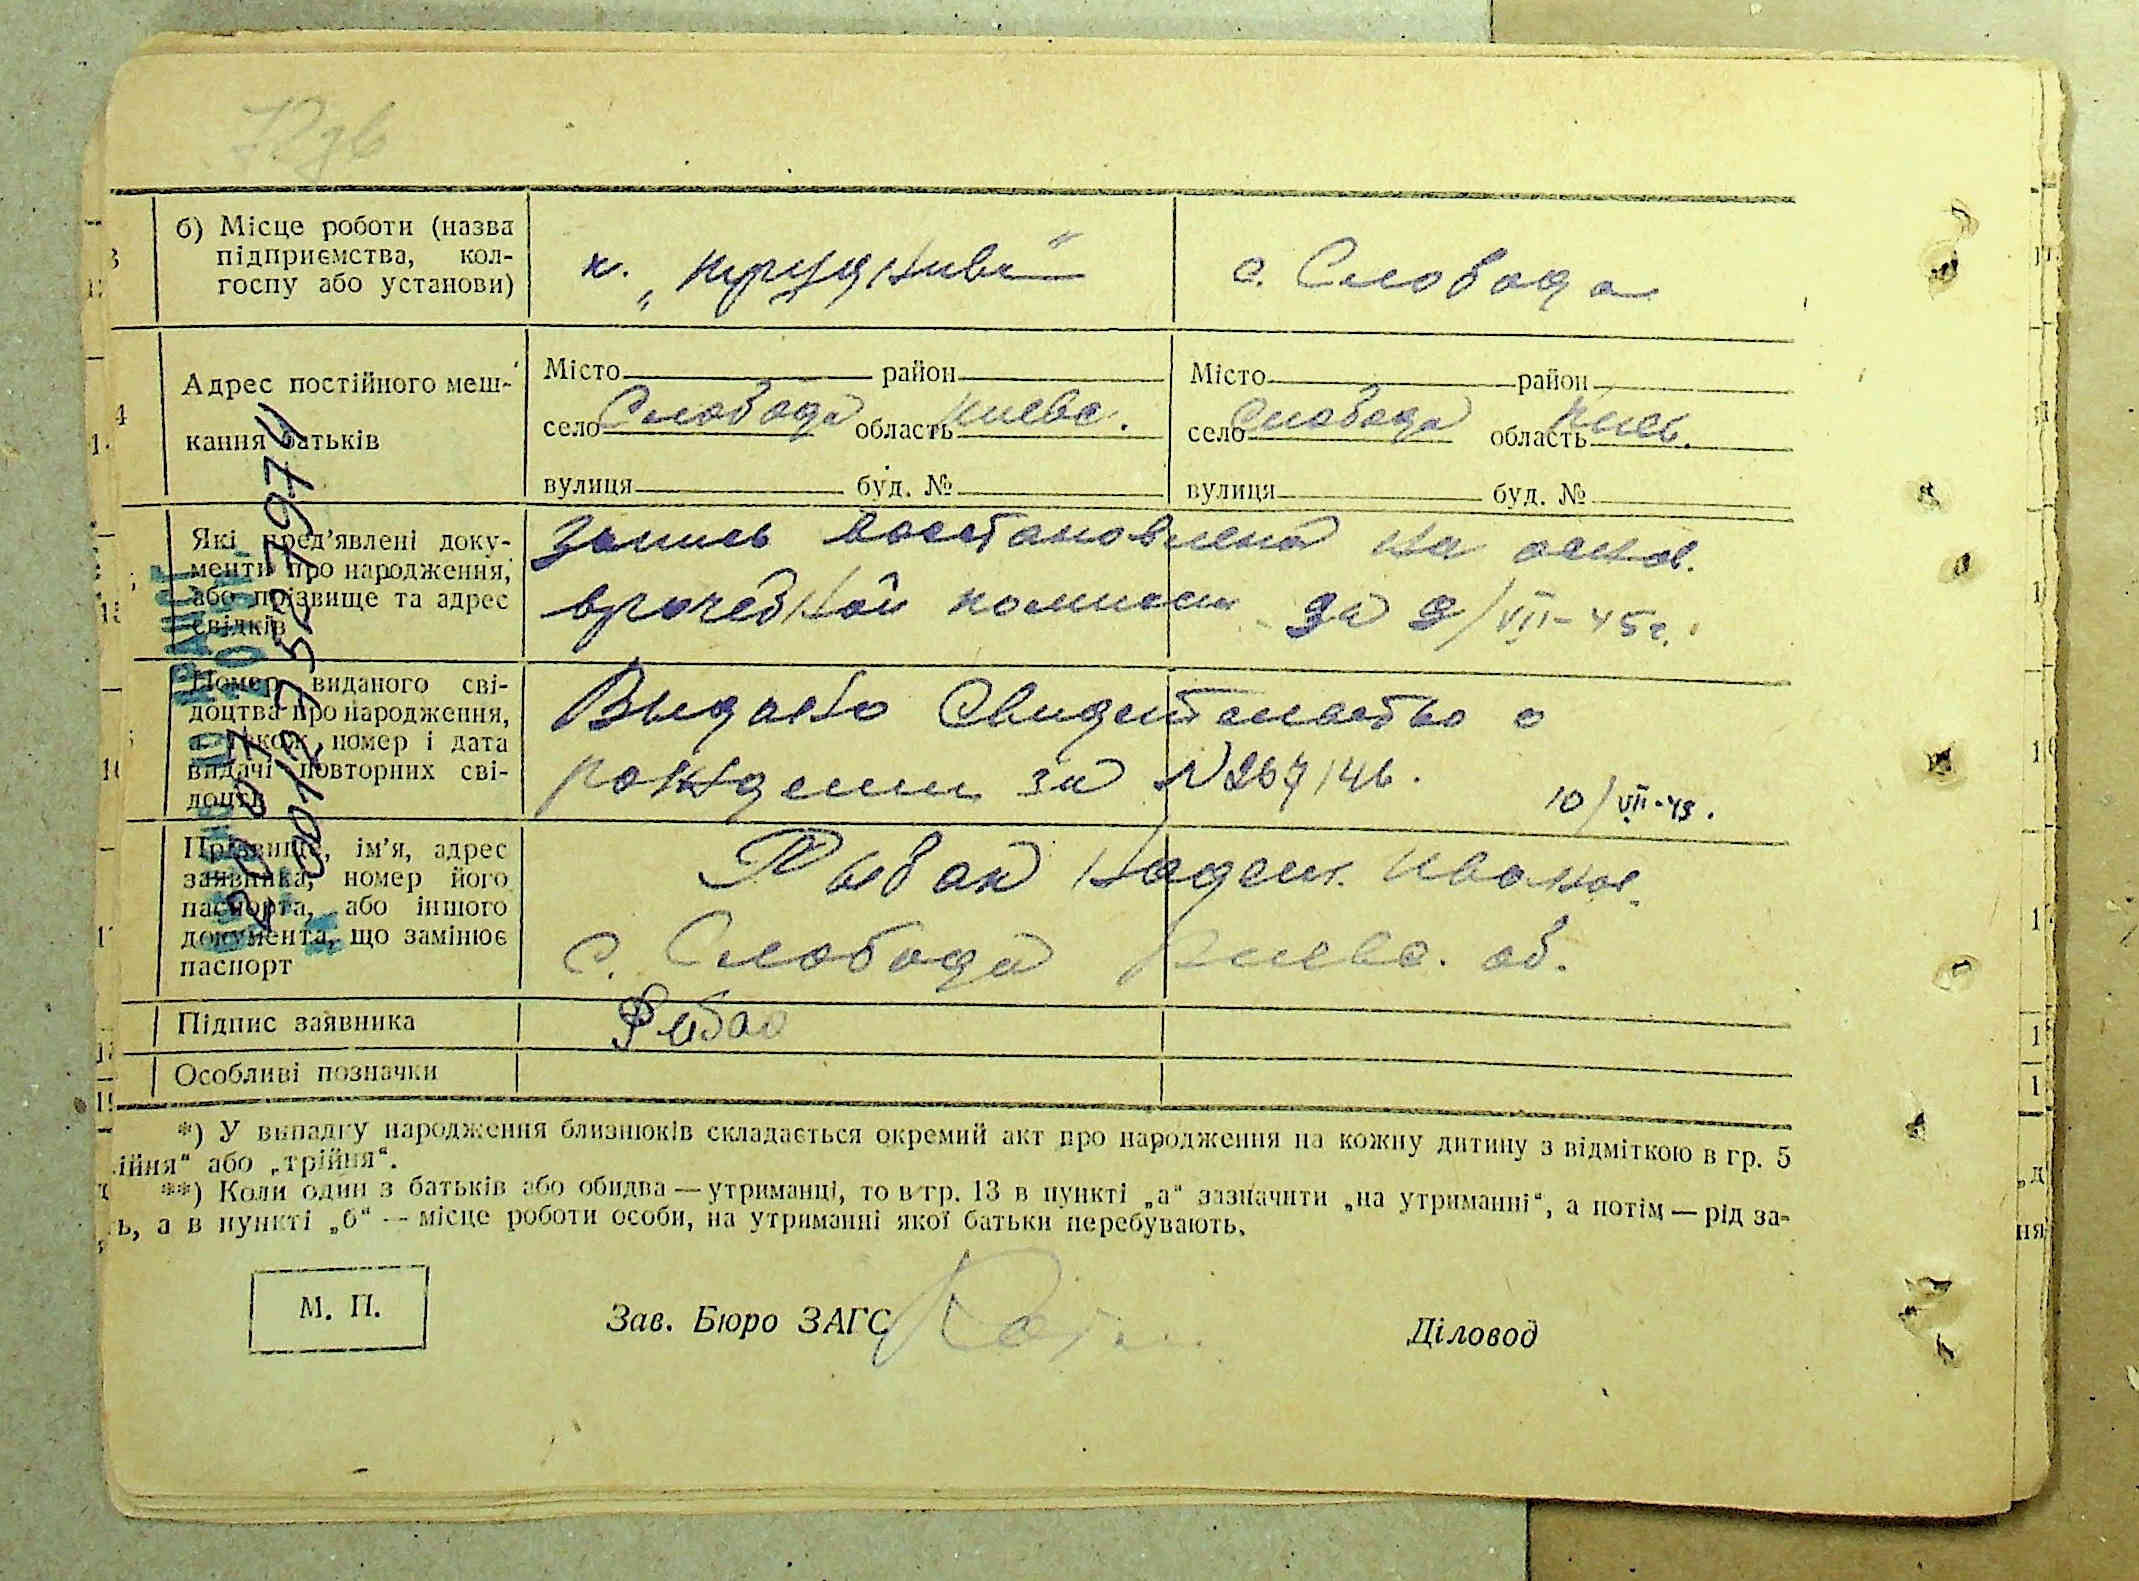 б) Місце роботи (назва
підприємства, кол-
госпу або установи)
к. с. Слобода
Адрес постійного меш-
кання батьків
Місто район Місто район
село Слобода область Киевс. село Слобода область Киев.
вулиця буд. № вулиця буд. №
Які пред’явлені доку-
менти про народження,
або прізвище та адрес
свідків
Запись восстановлена на основ.
врачебной за 9/VII-45г.
Номер виданого сві-
доцтва про народження,
а також номер і дата
видачі повторних сві-
доцтв
Выдано Свидетельство о
рождении за N 10/VII-45.
Прізвище, ім’я, адрес
заявника, номер його
паспорта, або іншого
документа, що замінює
паспорт
Рыбак Иванов.
с. Слобода Киевс. об.
Підпис заявника
Рибак
Особливі позначки
*) У випадку народження близнюків складається окремий акт про народження на кожну дитину з відміткою в гр. 5
ійня“ або „трійня“.
**) Коли один з батьків або обидва — утриманці, то в гр. 13 в пункті „а“ зазначити „на утриманні“, а потім — рід за-
ь, а в пункті „б“ -- місце роботи особи, на утриманні якої батьки перебувають.
М. П. Зав. Бюро ЗАГС Діловод